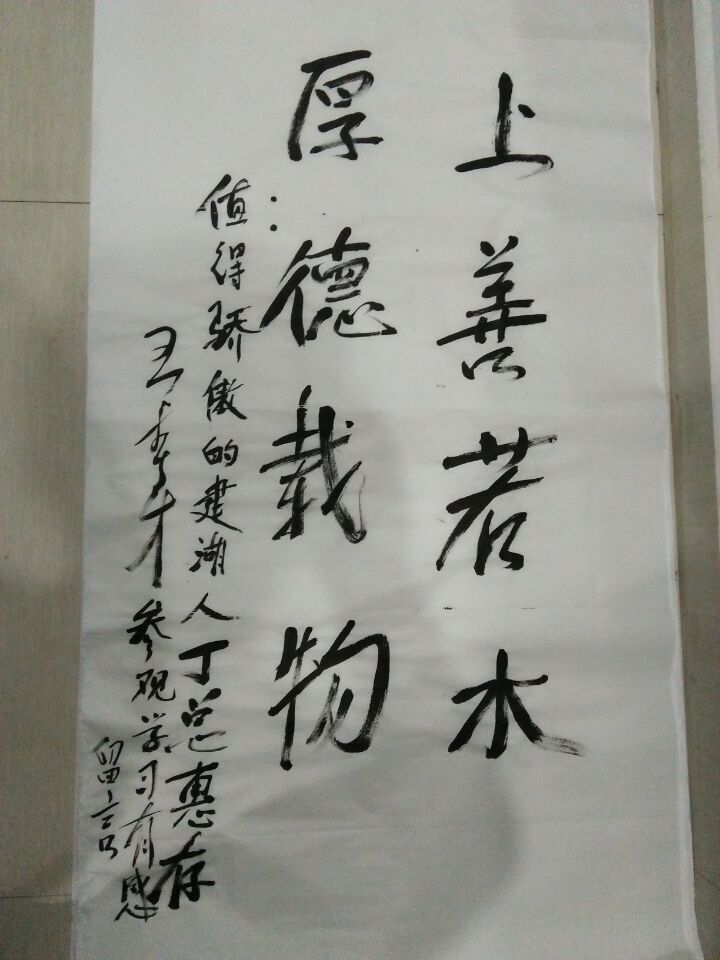 上善若水
厚德载物
：值得骄傲的建湖人丁总惠存
王 才参观学习有感
留言